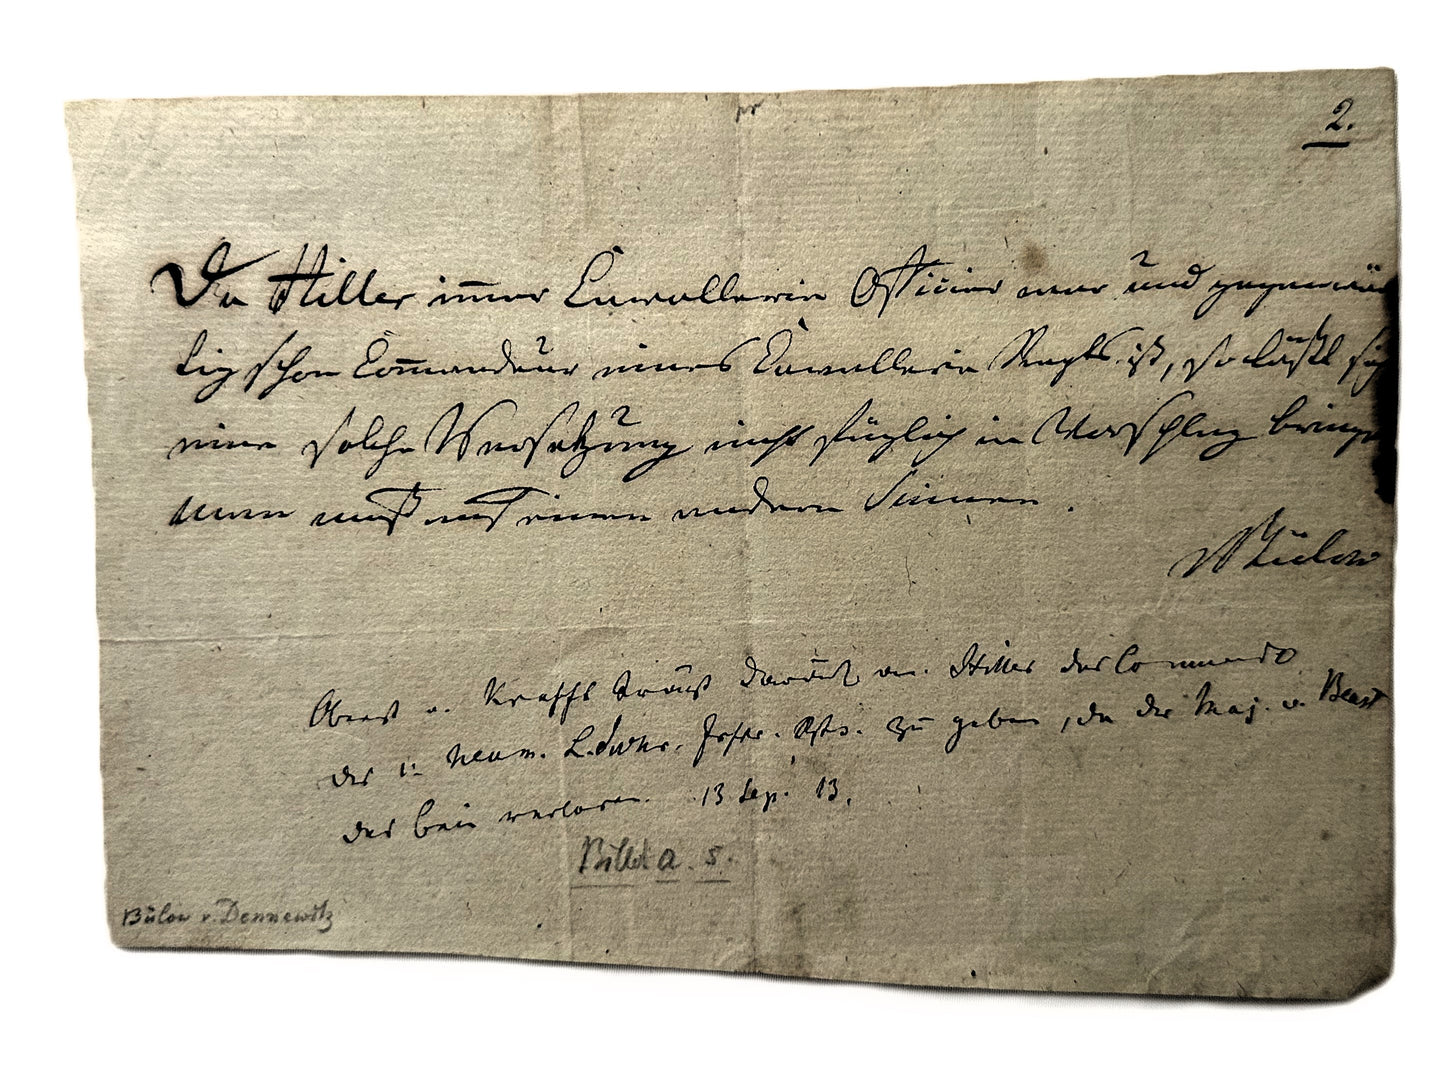 2.
Da Hiller immer Cavallerie Officier war und gegenwär
tig schon Commandeur eines Cavallerie Regts. ist, so läßt sich
eine solche Versetzung nicht füglich in Vorschlag bringen
man muß auf einen andern sinnen.
Bülow
Oberst v. Krafft trägt darauf an. Hiller das Commando
des Neum. Landw. Inftr. Rgts. zu geben, da der Maj. v.
das bein verloren. 13 Sep. 13.
Billet a. s.
Bülow v. Dennewitz